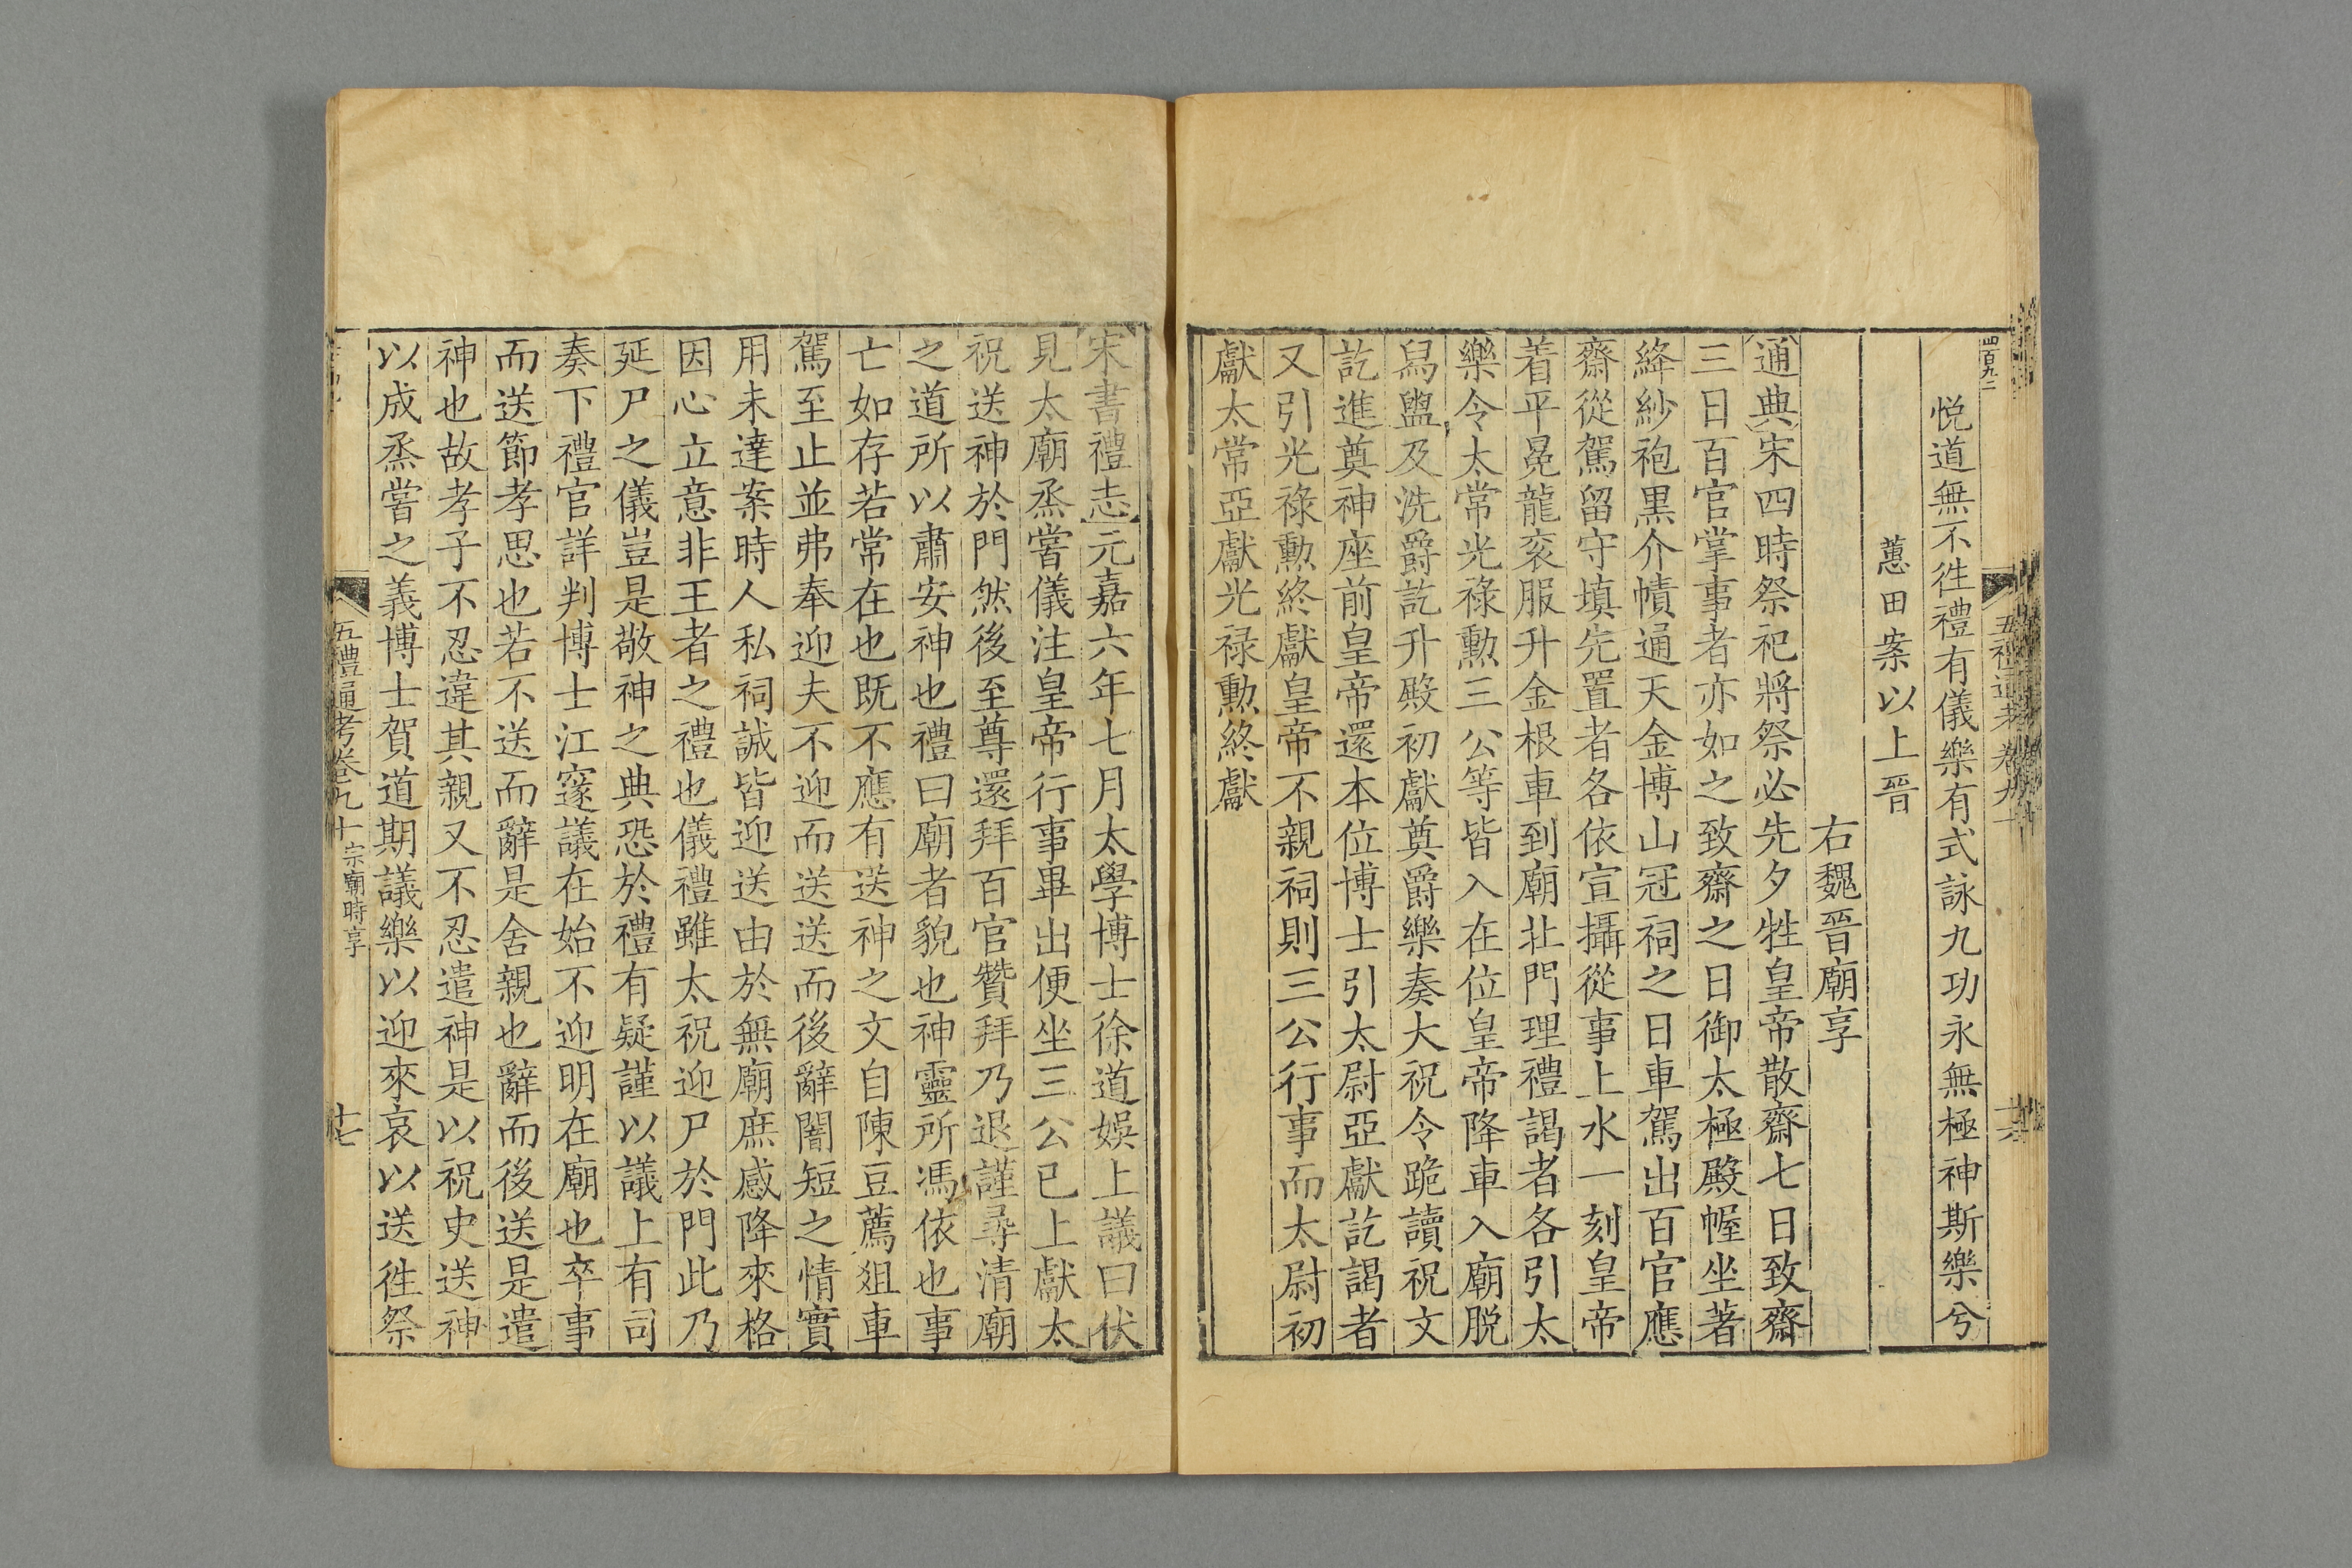 四百九二
五禮通考卷九十
悦道無不徃禮有儀樂有式詠九功永無極神斯樂兮
蕙田案以上晉
右魏晋廟享
通典宋四時祭祀將祭必先夕牲皇帝散齋七日致齋
三日百官掌事者亦如之致齋之日御太極殿幄坐著
絳紗袍黒介幘通天金博山冠祠之日車駕出百官應
齋從駕留守填先置者各依宣攝從事上水一刻皇帝
着平冕龍衮服升金根車到廟北門理禮謁者各引太
樂令太常光禄勲三公等皆入在位皇帝降車入廟脱
舄盥及洗爵訖升殿初獻奠爵樂奏大祝令跪讀祝文
訖進奠神座前皇帝還本位博士引太尉亞獻訖謁者
又引光禄勲終獻皇帝不親祠則三公行事而太尉初
獻太常亞獻光禄勲終獻
宋書禮志元嘉六年七月太學博士徐道娛上議曰伏
見太廟烝嘗儀注皇帝行事畢出便坐三公已上獻太
祝送神於門然後至尊還拜百官贊拜乃退謹尋清廟
之道所以肅安神也禮曰廟者貌也神靈所馮依也事
亡如存若常在也既不應有送神之文自陳豆薦俎車
駕至止並弗奉迎夫不迎而送送而後辭闇短之情實
用未達案時人私祠誠皆迎送由於無廟庶感降來格
因心立意非王者之禮也儀禮雖太祝迎尸於門此乃
延尸之儀豈是敬神之典恐於禮有疑謹以議上有司
奏下禮官詳判博士江邃議在始不迎明在廟也卒事
而送節孝思也若不送而辭是舍親也辭而後送是遣
神也故孝子不忍違其親又不忍遣神是以祝史送神
以成烝嘗之義博士賀道期議樂以迎來哀以送徃祭
五禮通考卷九十 宗廟時享 十七